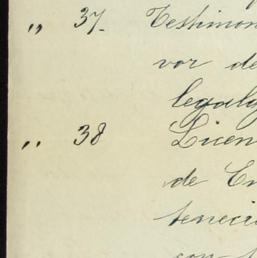 „ 37. Testimon
vor de
legaly
„ 38 Licen
de En
tenecie
con